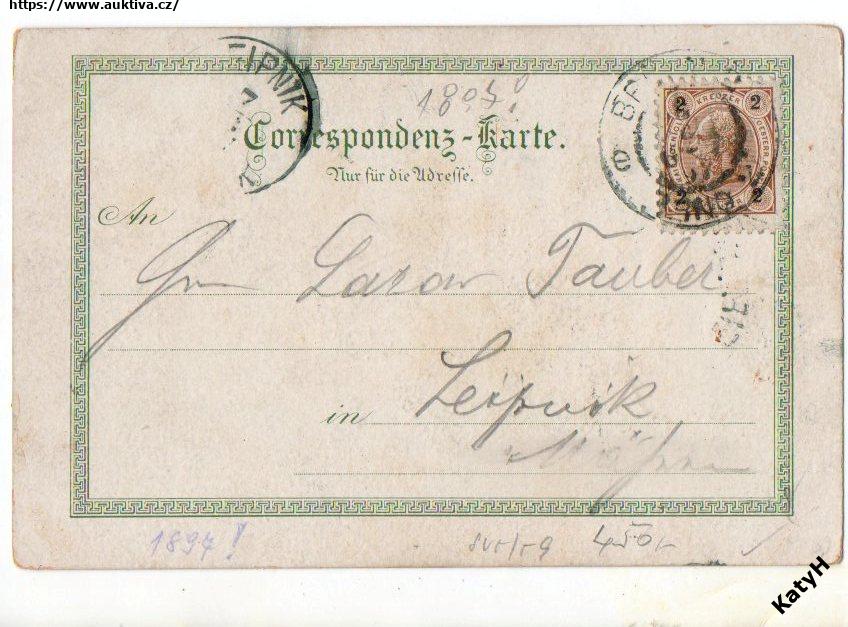 https://www.auktiva.cz/
EIPNIK
7
1897!
Correspondenz-Karte.
Nur für die Adresse.
2 KREUZER 2
2 2
An
Lazar Tauber
in Leipnik
Mähren
1897!
450,-
KatyH